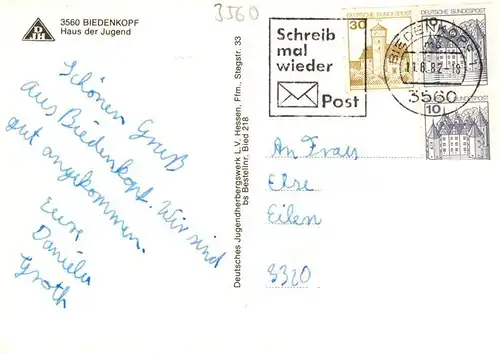 3560
DJH
3560 BIEDENKOPF
Haus der Jugend
Schönen Gruß
aus Biedenkopf. Wir sind
gut angekommen.
Eure
Daniela
Groth
Deutsches Jugendherbergswerk L.V. Hessen, Ffm., Stegstr. 33
bs Bestellnr. Bied 218
Schreib
mal
wieder
Post
30
DEUTSCHE BUNDESPOST
10
BIEDENKOPF 1
mb
11.8.82-18
3560
10
An Frau
Else
Eilen
3320